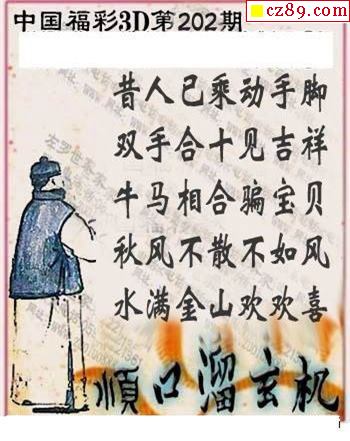 cz89.com
中国福彩3D第202期
昔人已乘动手脚
双手合十见吉祥
牛马相合骗宝贝
秋风不散不如风
水满金山欢欢喜
顺口溜玄机